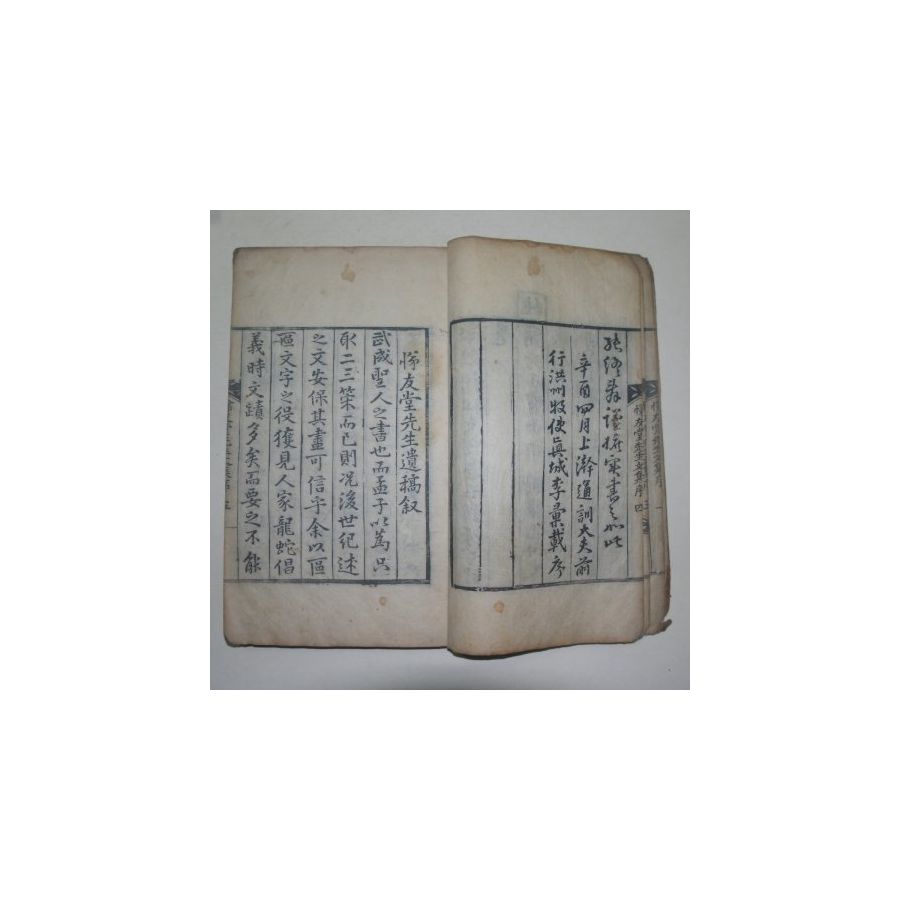 悌友堂先生文集序 四
據實書之如此
辛酉四月上澣通訓大夫前
行洪州牧使眞城李彙載序
悌友堂先生遺稿叙
武成聖人之書也而孟子以爲只
取二三策而已則况後世紀述
之文安保其盡可信乎余以區
區文字之役獲見人家龍蛇倡
義時文蹟多矣而要之不能